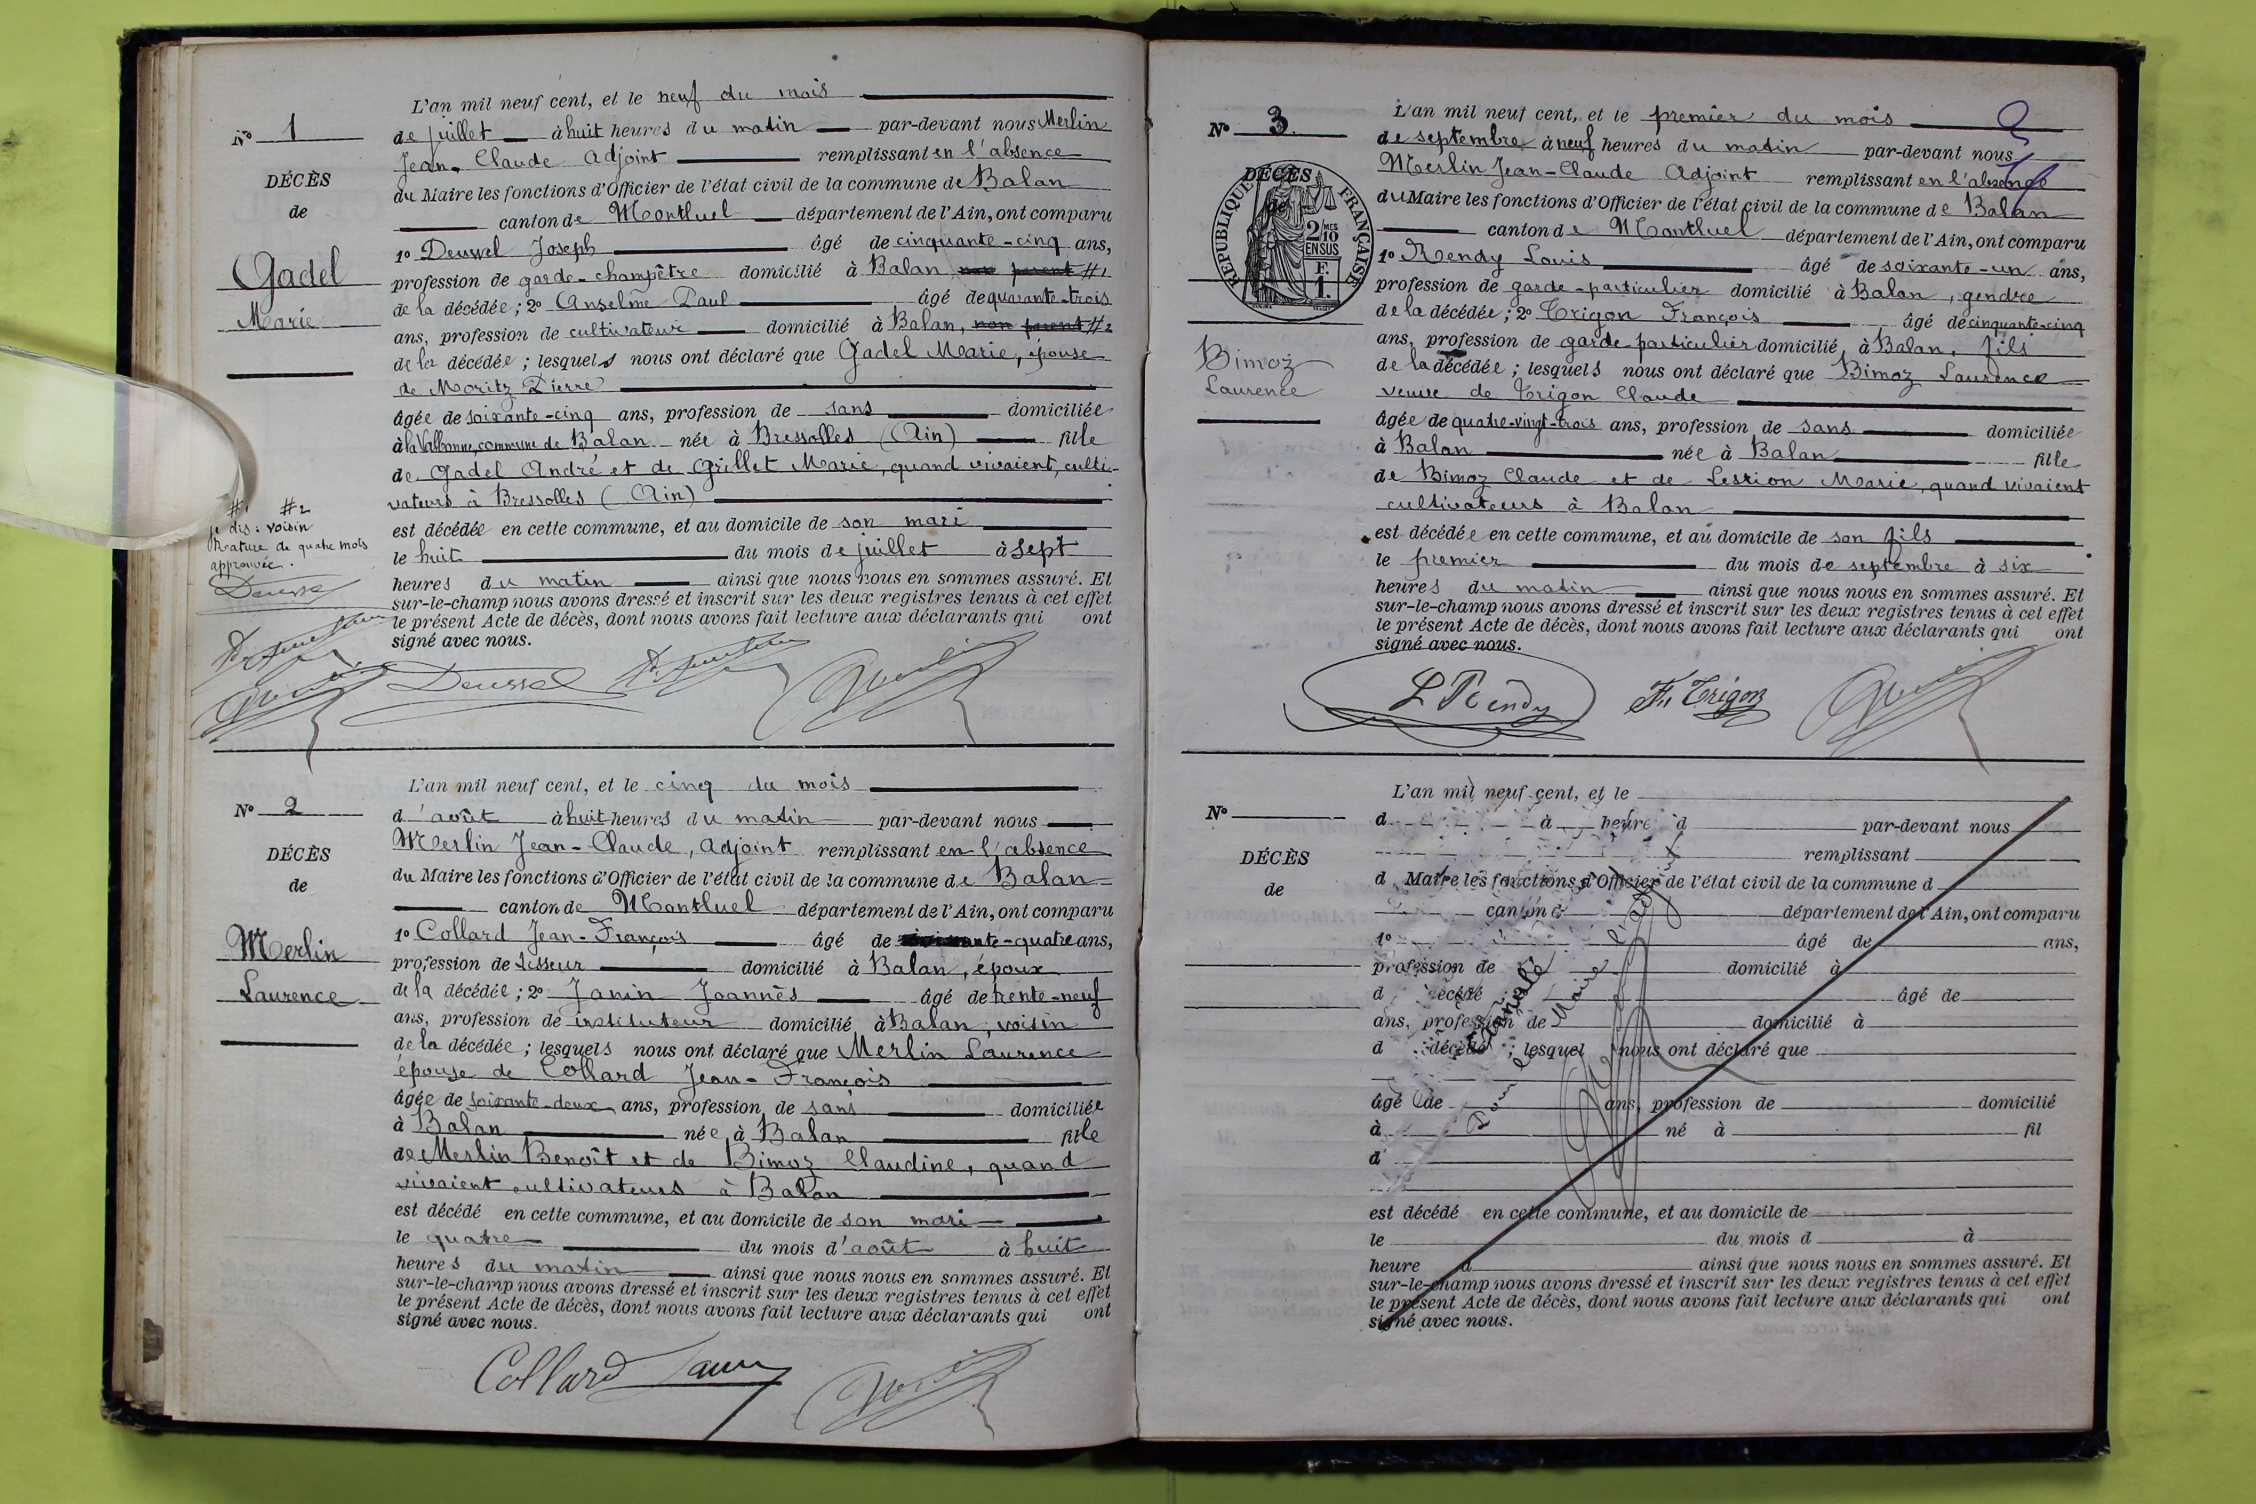 L'an mil neuf cent, et le neuf du mois
N° 1
de juillet à huit heures du matin par-devant nous Merlin
Jean-Claude Adjoint remplissant en l'absence
DÉCÈS
du Maire les fonctions d'Officier de l'état civil de la commune de Balan
de
canton de Montluel département de l'Ain, ont comparu
1° Deussel Joseph âgé de cinquante-cinq ans,
Gadel
profession de garde-champêtre domicilié à Balan, non parent #1
Marie
de la décédée; 2° Anselme Paul âgé de quarante-trois
ans, profession de cultivateur domicilié à Balan, non parent #2
de la décédée; lesquels nous ont déclaré que Gadel Marie, épouse
de Moritz Pierre
âgée de soixante-cinq ans, profession de sans domiciliée
à la Valbonne, commune de Balan née à Bressolles (Ain) fille
de Gadel André et de Grillet Marie, quand vivaient, culti-
vateurs à Bressolles (Ain)
est décédée en cette commune, et au domicile de son mari
le huit du mois de juillet à sept
heures du matin ainsi que nous nous en sommes assuré. Et
sur-le-champ nous avons dressé et inscrit sur les deux registres tenus à cet effet
le présent Acte de décès, dont nous avons fait lecture aux déclarants qui ont
signé avec nous.
#1 #2
je dis: voisin
Rature de quatre mots
approuvée.
Deussel
Deussel
L'an mil neuf cent, et le cinq du mois
N° 2
d'août à huit heures du matin par-devant nous
Merlin Jean-Claude, Adjoint remplissant en l'absence
DÉCÈS
du Maire les fonctions d'Officier de l'état civil de la commune de Balan
de
canton de Montluel département de l'Ain, ont comparu
1° Collard Jean-François âgé de soixante-quatre ans,
Merlin
profession de tisseur domicilié à Balan, époux
Laurence
de la décédée; 2° Janin Joannès âgé de trente-neuf
ans, profession de instituteur domicilié à Balan, voisin
de la décédée; lesquels nous ont déclaré que Merlin Laurence
épouse de Collard Jean-François
âgée de soixante-deux ans, profession de sans domiciliée
à Balan née à Balan fille
de Merlin Benoît et de Bimoz Claudine, quand
vivaient cultivateurs à Balan
est décédé en cette commune, et au domicile de son mari
le quatre du mois d'août à huit
heures du matin ainsi que nous nous en sommes assuré. Et
sur-le-champ nous avons dressé et inscrit sur les deux registres tenus à cet effet
le présent Acte de décès, dont nous avons fait lecture aux déclarants qui ont
signé avec nous.
Collard Janin
L'an mil neuf cent, et le premier du mois
N° 3
de septembre à neuf heures du matin par-devant nous
Merlin Jean-Claude Adjoint remplissant en l'absence
DÉCÈS
de
RÉPUBLIQUE FRANÇAISE
2/10 MES
EN SUS
F.
1.
du Maire les fonctions d'Officier de l'état civil de la commune de Balan
canton de Montluel département de l'Ain, ont comparu
1° Rendy Louis âgé de soixante-un ans,
profession de garde-particulier domicilié à Balan, gendre
de la décédée; 2° Trigon François âgé de cinquante-cinq
Bimoz
ans, profession de garde-particulier domicilié à Balan, fils
Laurence
de la décédée; lesquels nous ont déclaré que Bimoz Laurence
veuve de Trigon Claude
âgée de quatre-vingt-trois ans, profession de sans domiciliée
à Balan née à Balan fille
de Bimoz Claude et de Lestion Marie, quand vivaient
cultivateurs à Balan
est décédée en cette commune, et au domicile de son fils
le premier du mois de septembre à six
heures du matin ainsi que nous nous en sommes assuré. Et
sur-le-champ nous avons dressé et inscrit sur les deux registres tenus à cet effet
le présent Acte de décès, dont nous avons fait lecture aux déclarants qui ont
signé avec nous.
L Rendy F. Trigon
L'an mil neuf cent, et le
N°
d à heure d par-devant nous
remplissant
DÉCÈS
d Maire les fonctions d'Officier de l'état civil de la commune d
de
canton d département de l'Ain, ont comparu
1° âgé de ans,
profession de domicilié à
d décédé âgé de
ans, profession de domicilié à
d décédé ; lesquel nous ont déclaré que
âgé de ans, profession de domicilié
à né à fil
d
est décédé en cette commune, et au domicile de
le du mois d à
heure d ainsi que nous nous en sommes assuré. Et
sur-le-champ nous avons dressé et inscrit sur les deux registres tenus à cet effet
le présent Acte de décès, dont nous avons fait lecture aux déclarants qui ont
signé avec nous.
Annulé
Pour le Maire l'adjoint